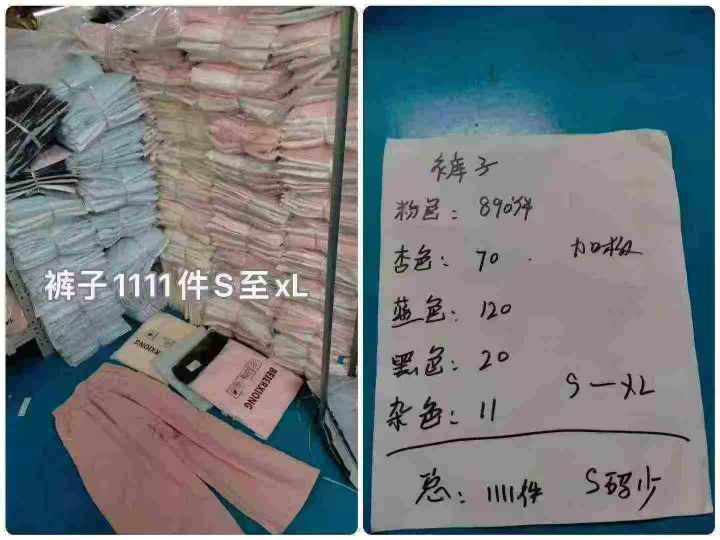 裤子1111件S至xL
RXIONG
BEIERXIONG
裤子
粉色：890件
杏色：70
加极
蓝色：120
黑色：20
S—XL
杂色：11
总：1111件
S码少